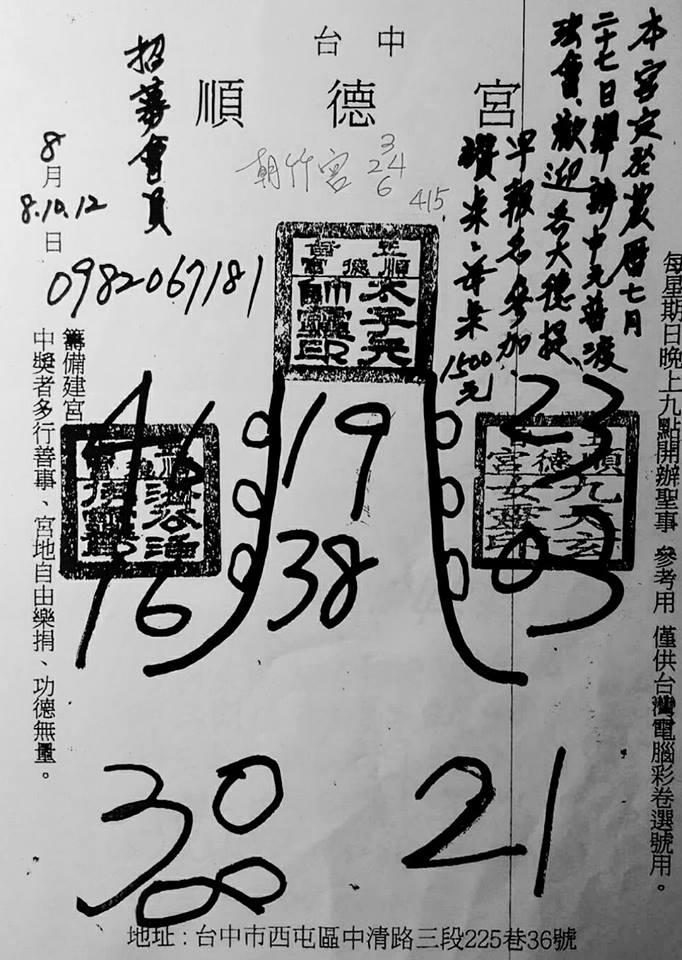 台中
順德宮
本宮定於農曆七月
二十七日舉辦中元普渡
法會、歡迎各大德提
早報名參加
讚桌、普桌1500元
招募會員
8月
8.10.12日
0982067181
朝竹宮
3
24
6
415
正順
德
太子元
帥靈印
順
德
宮
九天玄
女靈印
46
19
23
16
38
03
30
21
每星期日晚上九點開辦聖事 參考用 僅供台灣電腦彩卷選號用。
籌備建宮
中獎者多行善事、宮地自由樂捐、功德無量。
地址:台中市西屯區中清路三段225巷36號